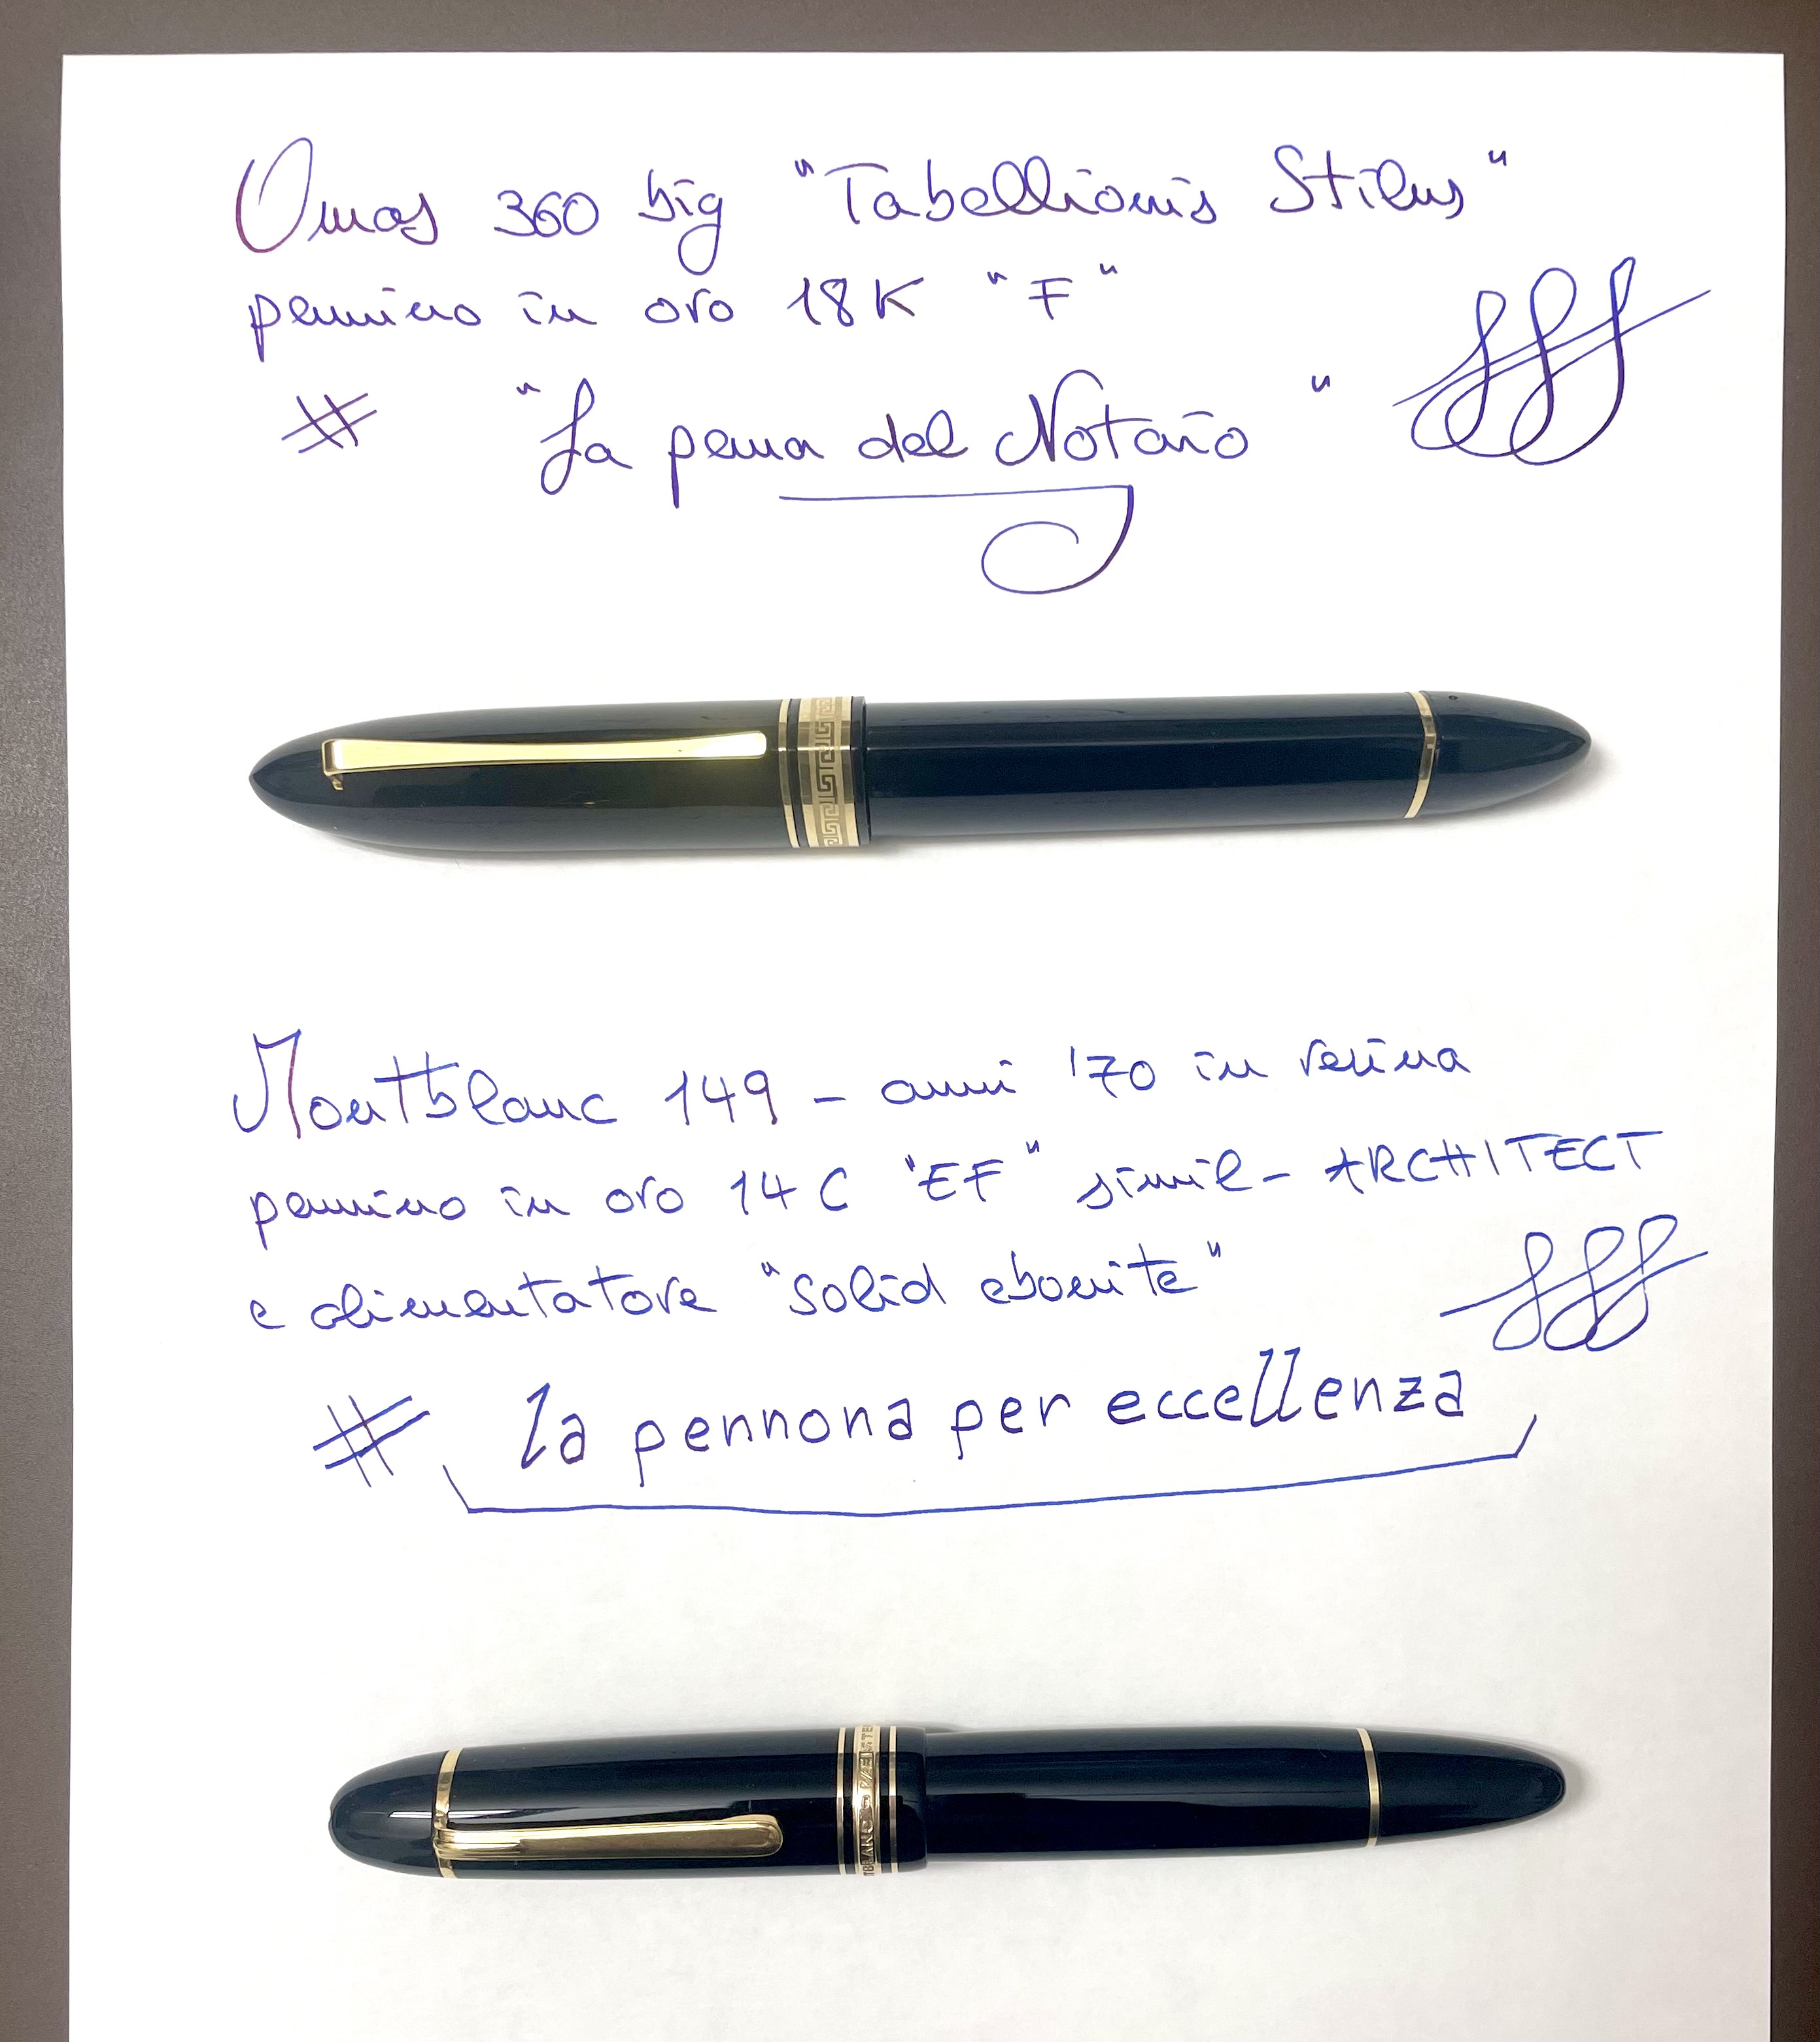 Omas 360 big "Tabellionis Stilus"
pennino in oro 18K "F"
# "La penna del Notaio"
Montblanc 149 - anni '70 in resina
pennino in oro 14C "EF" simil-ARCHITECT
e alimentatore "solid ebonite"
# la pennona per eccellenza